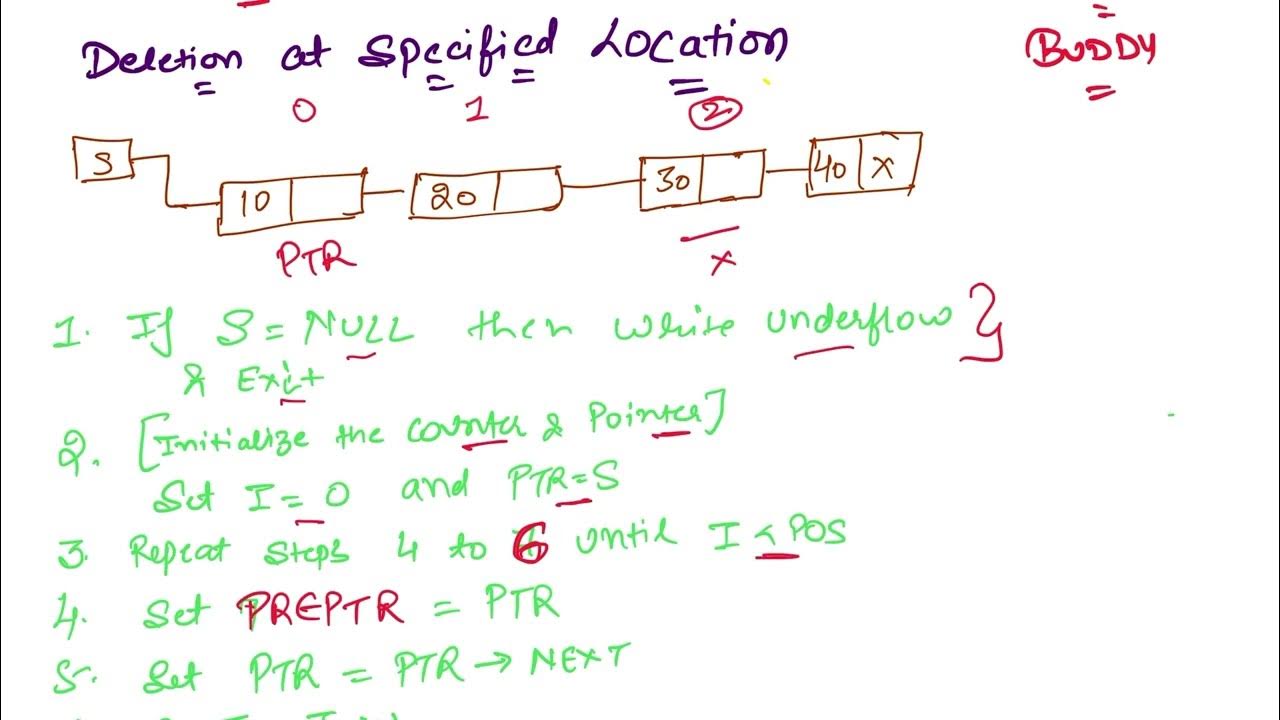 Deletion at Specified Location
BUDDY
0 1 2
S
10 20 30 40 X
PTR X
1. If S = NULL then write underflow }
& Exit
2. [Initialize the counter & Pointer]
Set I = 0 and PTR = S
3. Repeat steps 4 to 6 until I < POS
4. Set PREPTR = PTR
5. Set PTR = PTR → NEXT